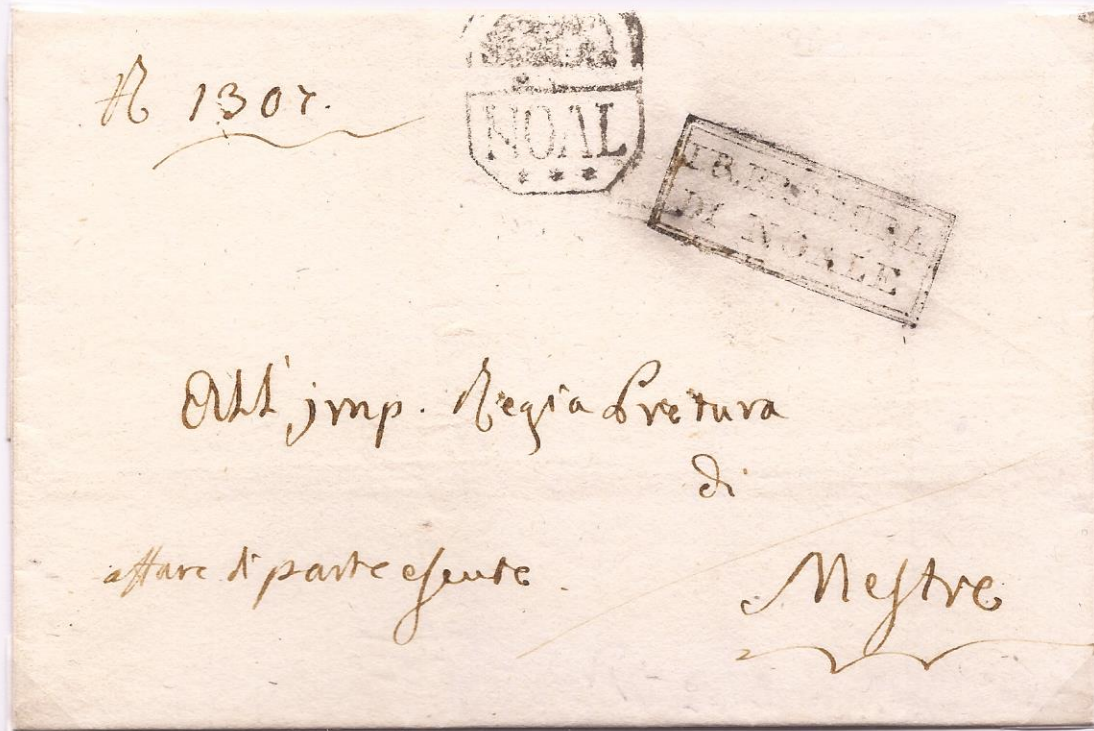 N 1307.
NOAL
I. R. PRETURA
DI NOALE
All' imp. Regia Pretura
di
Mestre
affare di parte esente.